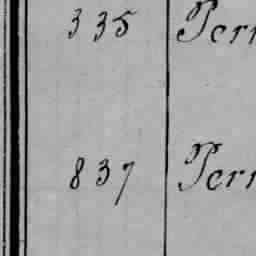 335 Perr
837 Perr